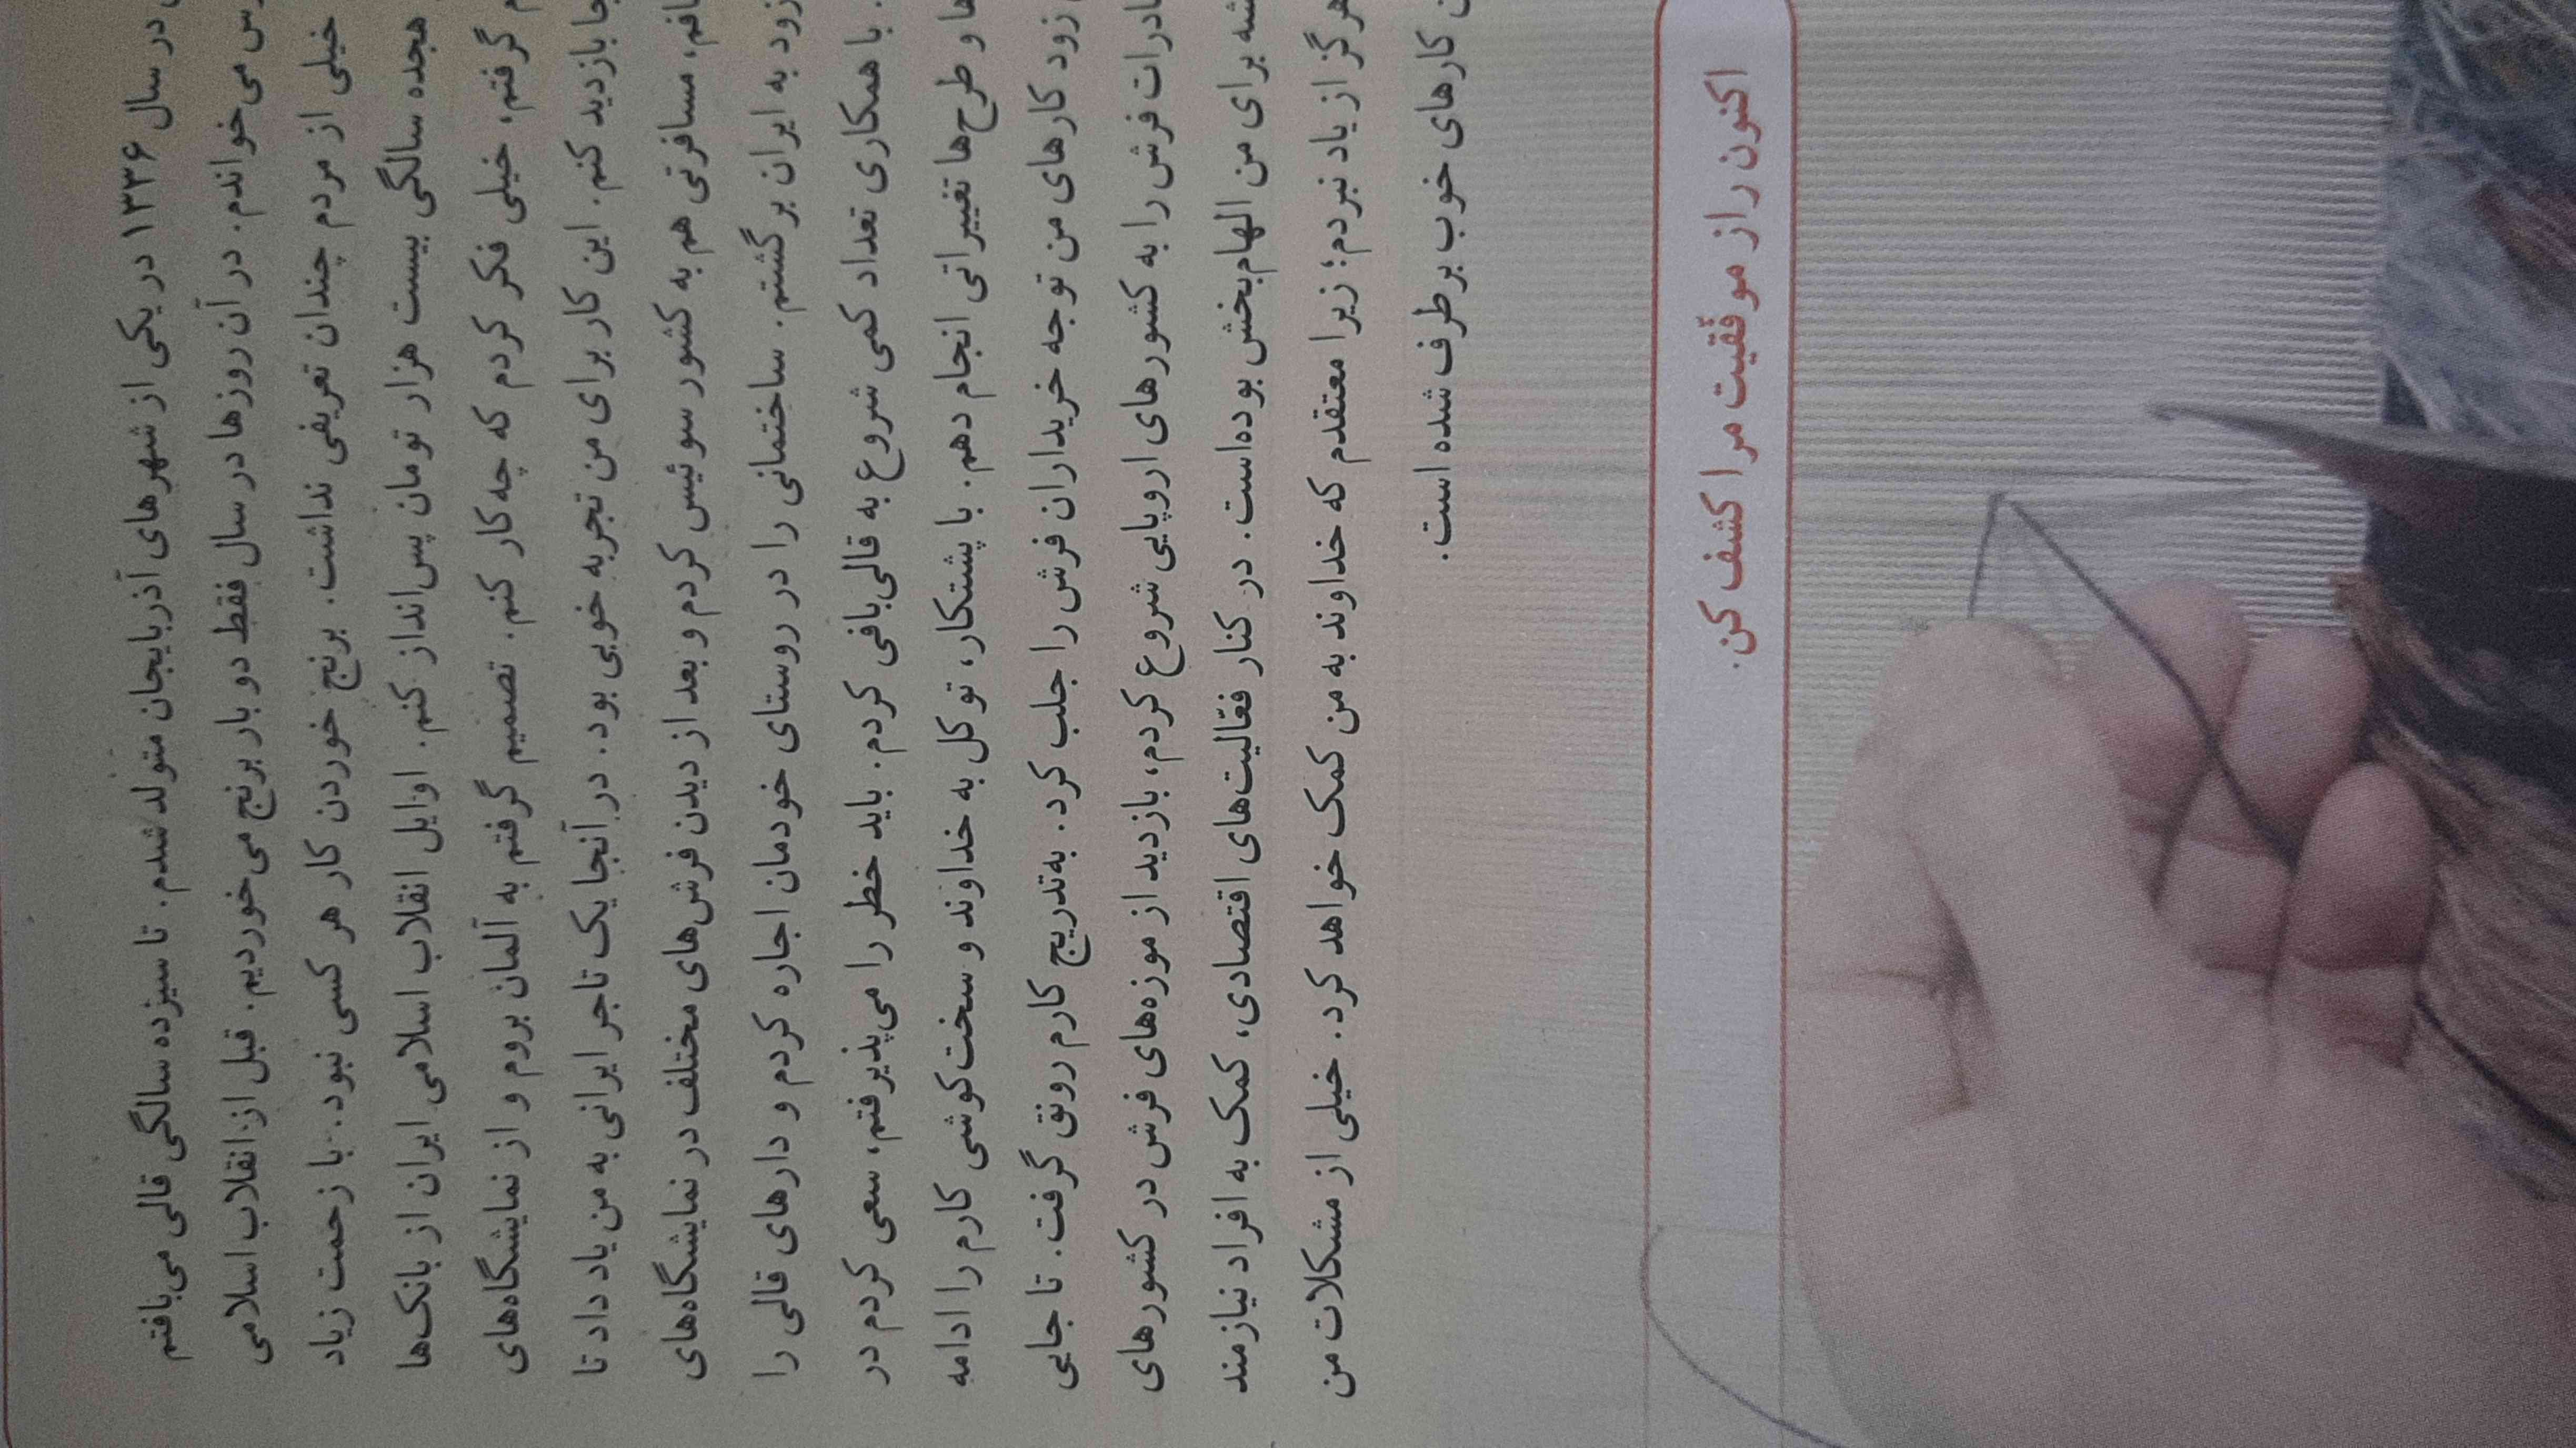 در سال ۱۳۳۶ در یکی از شهرهای آذربایجان متولد شدم. تا سیزده سالگی قالی می‌بافتم
می‌خواندم. در آن روزها در سال فقط دو بار برنج می‌خوردیم. قبل از انقلاب اسلامی
خیلی از مردم چندان تعریفی نداشت. برنج خوردن کار هر کسی نبود. با زحمت زیاد
هجده سالگی بیست هزار تومان پس‌انداز کنم. اوایل انقلاب اسلامی ایران از بانک‌ها
گرفتم، خیلی فکر کردم که چه کار کنم. تصمیم گرفتم به آلمان بروم و از نمایشگاه‌های
بازدید کنم. این کار برای من تجربه خوبی بود. در آنجا یک تاجر ایرانی به من یاد داد تا
مسافرتی هم به کشور سوئیس کردم و بعد از دیدن فرش‌های مختلف در نمایشگاه‌های
زود به ایران برگشتم. ساختمانی را در روستای خودمان اجاره کردم و دارهای قالی را
با همکاری تعداد کمی شروع به قالی‌بافی کردم. باید خطر را می‌پذیرفتم، سعی کردم در
و طرح‌ها تغییراتی انجام دهم. با پشتکار، توکل به خداوند و سخت‌کوشی کارم را ادامه
زود کارهای من توجه خریداران فرش را جلب کرد. به‌تدریج کارم رونق گرفت. تا جایی
فرش را به کشورهای اروپایی شروع کردم، بازدید از موزه‌های فرش در کشورهای
برای من الهام‌بخش بوده‌است. در کنار فعّالیت‌های اقتصادی، کمک به افراد نیازمند
هرگز از یاد نبردم؛ زیرا معتقدم که خداوند به من کمک خواهد کرد. خیلی از مشکلات من
کارهای خوب برطرف شده است.
اکنون راز موفّقیت مرا کشف کن.